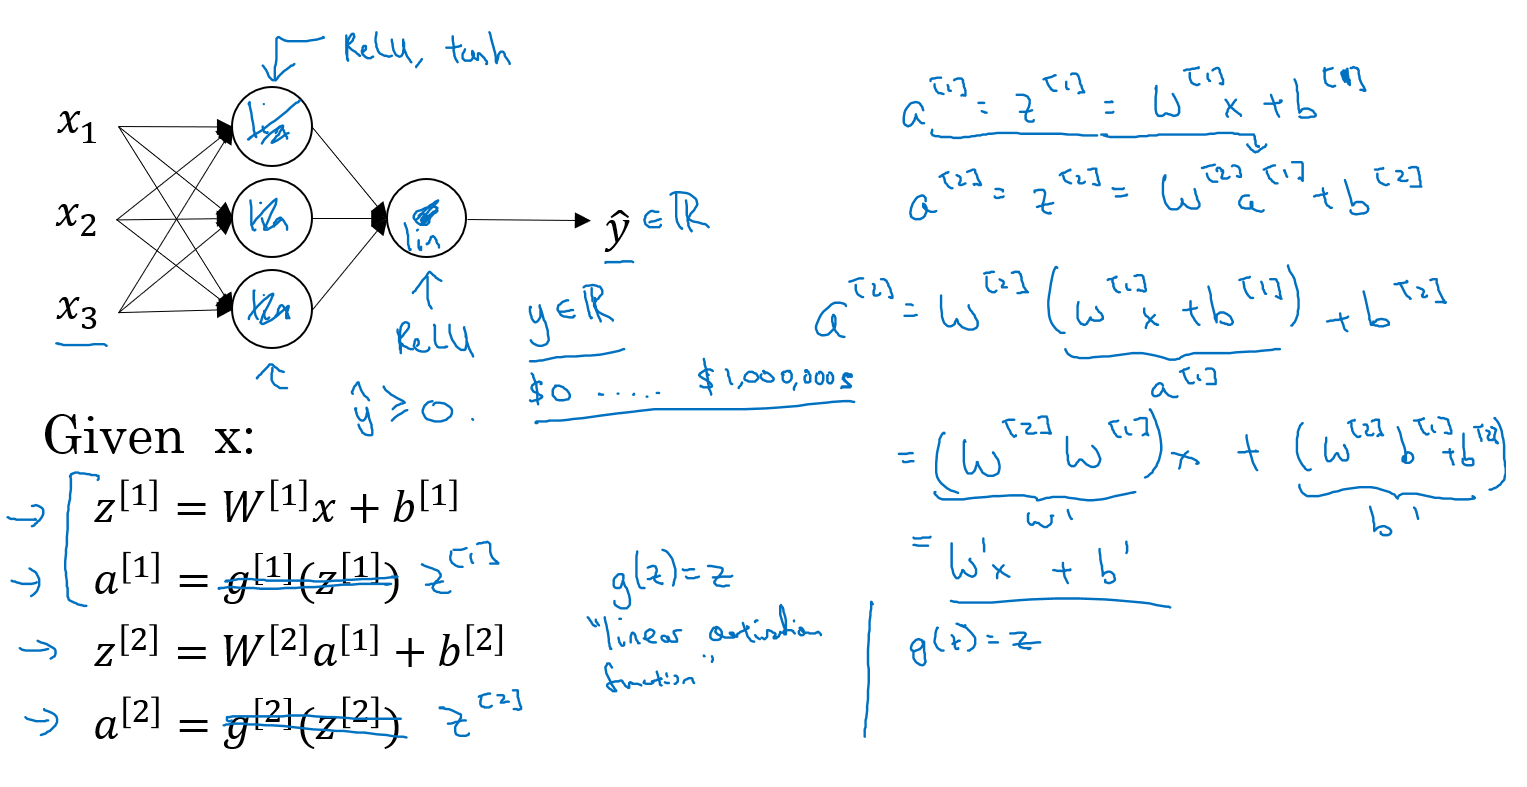 ReLU, tanh
x₁
x₂
x₃
lin
ŷ ∈ ℝ
ReLU
y ∈ ℝ
$0 ..... $1,000,000s
ŷ ≥ 0.
Given x:
→ z^[1] = W^[1]x + b^[1]
→ a^[1] = g^[1](z^[1]) z^[1]
→ z^[2] = W^[2]a^[1] + b^[2]
→ a^[2] = g^[2](z^[2]) z^[2]
g(z) = z
"linear activation
function"
a^[1] = z^[1] = W^[1]x + b^[1]
a^[2] = z^[2] = W^[2]a^[1] + b^[2]
a^[2] = W^[2](W^[1]x + b^[1]) + b^[2]
a^[1]
= (W^[2]W^[1])x + (W^[2]b^[1] + b^[2])
W' b'
= W'x + b'
g(z) = z